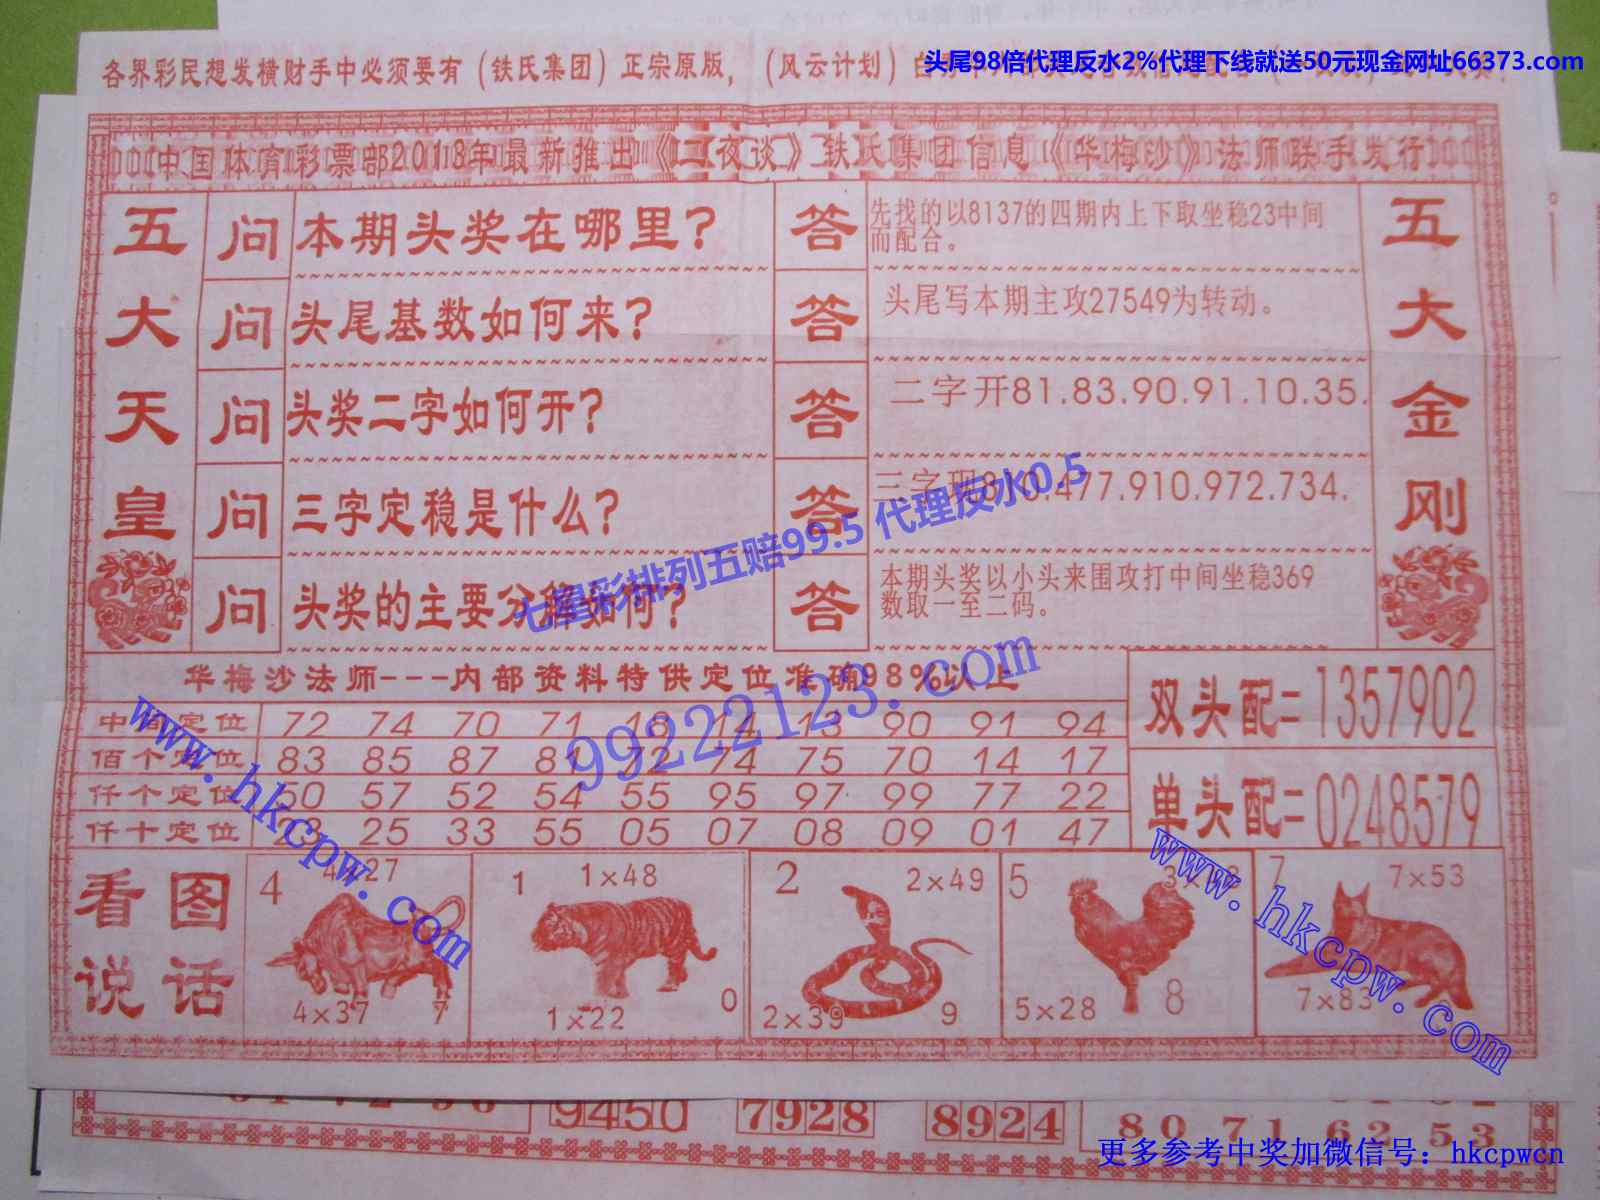 头尾98倍代理反水2%代理下线就送50元现金网址66373.com
各界彩民想发横财手中必须要有（铁氏集团）正宗原版，（风云计划）
中国体育彩票部2013年最新推出《二夜谈》铁氏集团信息《华梅沙》法师联手发行
五大天皇
五大金刚
问 本期头奖在哪里？
答 先找的以8137的四期内上下取坐稳23中间
而配合。
问 头尾基数如何来？
答 头尾写本期主攻27549为转动。
问 头奖二字如何开？
答 二字开81.83.90.91.10.35.
问 三字定稳是什么？
答 三字现 477.910.972.734.
问 头奖的主要分解如何？
答 本期头奖以小头来围攻打中间坐稳369
数取一至二码。
七星彩排列五赔99.5 代理反水0.5
99222123.com
华梅沙法师---内部资料特供定位准确98%以上
中间定位 72 74 70 71 90 91 94
佰个定位 83 85 87 81 72 74 75 70 14 17
仟个定位 50 57 52 54 55 95 97 99 77 22
仟十定位 25 33 55 05 07 08 09 01 47
双头配二 1357902
单头配二 0248579
看图说话
4 4×27
4×37 7
1 1×48
1×22 0
2 2×49
2×39 9
5
5×28 8
7 7×53
7×83
www.hkcpw.com
www.hkcpw.com
9450 7928 8924
80 71 62 53
更多参考中奖加微信号：hkcpwcn